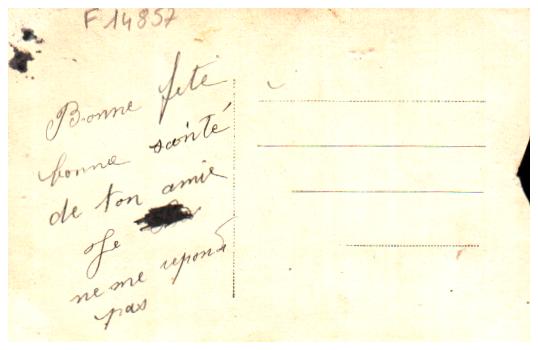 F 14857
Bonne fete
bonne santé
de ton amie
Je
ne me repond
pas